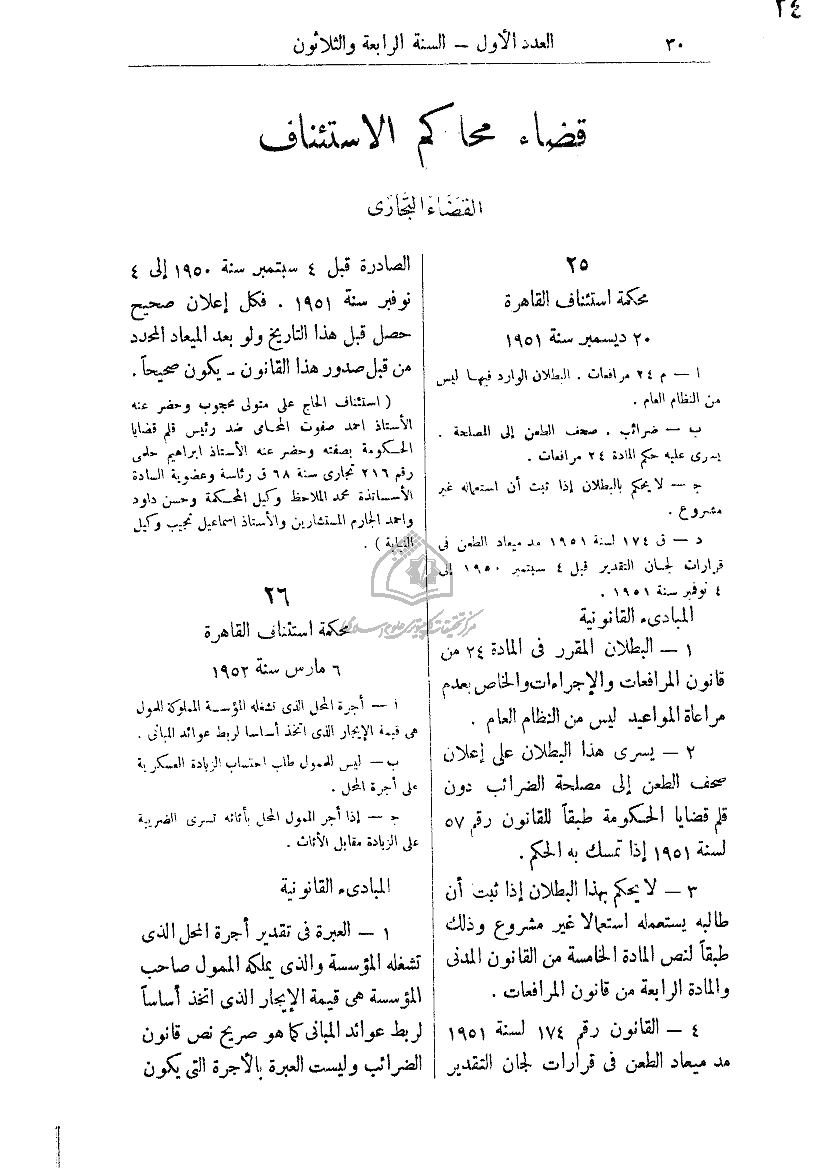 ٢٤
٣٠
العدد الأول – السنة الرابعة والثلاثون
قضاء محاكم الاستئناف
القضاء التجارى
٢٥
محكمة استئناف القاهرة
٢٠ ديسمبر سنة ١٩٥١
ا – م ٢٤ مرافعات . البطلان الوارد فيها ليس
من النظام العام .
ب – ضرائب . صحف الطعن إلى المصلحة .
يسرى عليه حكم المادة ٢٤ مرافعات .
ج – لا يحكم بالبطلان إذا ثبت أن استعماله غير
مشروع .
د – ق ١٧٤ لسنة ١٩٥١ مد ميعاد الطعن فى
قرارات لجان التقدير قبل ٤ سبتمبر ١٩٥٠ إلى
٤ نوفبر سنة ١٩٥١ .
المبادىء القانونية
١ – البطلان المقرر فى المادة ٢٤ من
قانون المرافعات والإجراءات والخاص بعدم
مراعاة المواعيد ليس من النظام العام .
٢ – يسرى هذا البطلان على إعلان
صحف الطعن إلى مصلحة الضرائب دون
قلم قضايا الحكومة طبقاً للقانون رقم ٥٧
لسنة ١٩٥١ إذا تمسك به الحكم .
٣ – لا يحكم بهذا البطلان إذا ثبت أن
طالبه يستعمله استعمالا غير مشروع وذلك
طبقاً لنص المادة الخامسة من القانون المدنى
والمادة الرابعة من قانون المرافعات .
٤ – القانون رقم ١٧٤ لسنة ١٩٥١
مد ميعاد الطعن فى قرارات لجان التقدير
الصادرة قبل ٤ سبتمبر سنة ١٩٥٠ إلى ٤
نوفبر سنة ١٩٥١ . فكل إعلان صحيح
حصل قبل هذا التاريخ ولو بعد الميعاد المحدد
من قبل صدور هذا القانون – يكون صحيحاً .
( استئناف الحاج على متولى محجوب وحضر عنه
الأستاذ احمد صفوت المحامى ضد رئيس قلم قضايا
الحكومة بصفته وحضر عنه الأستاذ ابراهيم حلمى
رقم ٢١٦ تجارى سنة ٦٨ ق رئاسة وعضوية السادة
الأساتذة محمد الملاحظ وكيل المحكمة وحسن داود
واحمد الجارم المستشارين والأستاذ اسماعيل نجيب وكيل
النيابة ) .
مركز تحقيقات كامپيوترى علوم اسلامى
٢٦
محكمة استئناف القاهرة
٦ مارس سنة ١٩٥٢
ا – أجرة المحل الذى تشغله المؤسسة المملوكة للمول
هى قيمة الإيجار الذى اتخذ أساسا لربط عوائد المبانى .
ب – ليس للممول طلب احتساب الزيادة العسكرية
على أجرة المحل .
ج – إذا أجر الممول المحل بأثاثه تسرى الضريبة
على الزيادة مقابل الأثاث .
المبادىء القانونية
١ – العبرة فى تقدير أجرة المحل الذى
تشغله المؤسسة والذى يملكه الممول صاحب
المؤسسة هى قيمة الإيجار الذى اتخذ أساساً
لربط عوائد المبانى كما هو صريح نص قانون
الضرائب وليست العبرة بالأجرة التى يكون